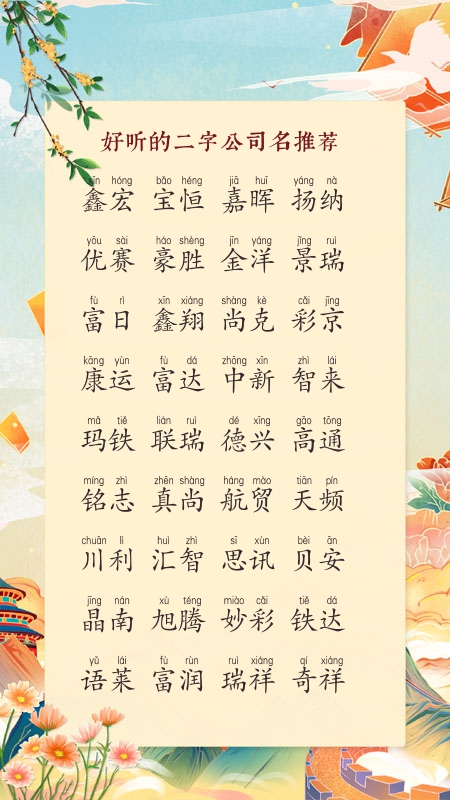 好听的二字公司名推荐
xīn hóng bǎo héng jiā huī yáng nà
鑫宏 宝恒 嘉晖 扬纳
yōu sài háo shèng jīn yáng jǐng ruì
优赛 豪胜 金洋 景瑞
fù rì xīn xiáng shàng kè cǎi jīng
富日 鑫翔 尚克 彩京
kāng yùn fù dá zhōng xīn zhì lái
康运 富达 中新 智来
mǎ tiě lián ruì dé xīng gāo tōng
玛铁 联瑞 德兴 高通
míng zhì zhēn shàng háng mào tiān pín
铭志 真尚 航贸 天频
chuān lì huì zhì sī xùn bèi ān
川利 汇智 思讯 贝安
jīng nán xù téng miào cǎi tiě dá
晶南 旭腾 妙彩 铁达
yǔ lái fù rùn ruì xiáng qí xiáng
语莱 富润 瑞祥 奇祥